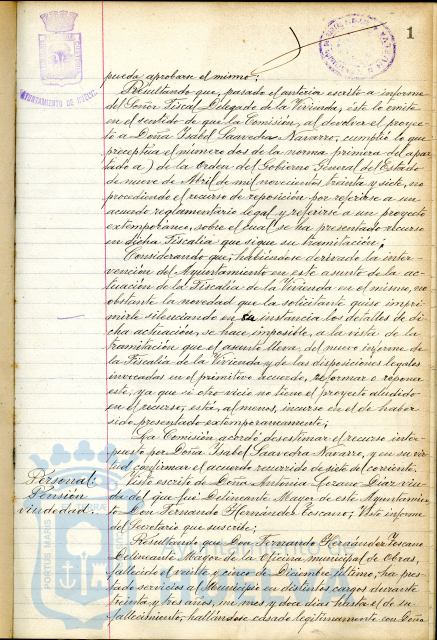 1
AYUNTAMIENTO DE HUELVA
pueda aprobarse el mismo;
Resultando que, pasado el anterior escrito a informe
del Señor Fiscal Delegado de la Vivienda, este lo emite
en el sentido de que la Comisión, al devolver el proyec-
to a Doña Isabel Saavedra Navarro, cumplió lo que
preceptúa el número dos de la norma primera del apar-
tado a) de la Orden del Gobierno General del Estado
de nueve de Abril de mil novecientos treinta y siete, no
procediendo el recurso de reposición por referirse a un
acuerdo reglamentario legal y referirse a un proyecto
extemporáneo, sobre el cual se ha presentado recurso
en dicha Fiscalía que sigue su tramitación;
Considerando que, habiéndose derivado la inter-
vención del Ayuntamiento en este asunto de la ac-
tuación de la Fiscalía de la Vivienda en el mismo, no
obstante la novedad que la solicitante quiso impri-
mirle silenciando en su instancia los detalles de di-
cha actuación, se hace imposible, a la vista de la
tramitación que el asunto lleva, del nuevo informe de
la Fiscalía de la Vivienda y de las disposiciones legales
invocadas en el primitivo acuerdo, reformar o reponer
este, ya que si otro vicio no tiene el proyecto aludido
en el recurso, esta, al menos, incurso en el de haber
sido presentado extemporáneamente;
La Comisión acordó desestimar el recurso inter-
puesto por Doña Isabel Saavedra Navarro, y en su vir-
tud confirmar el acuerdo recurrido de siete del corriente.
Personal:
Pensión
viudedad.
Visto escrito de Doña Antonia Lozano Diaz viu-
da del que fué Delineante Mayor de este Ayuntamien-
to Don Fernando Hernández Toscano; Visto informe
del Secretario que suscribe;
Resultando que Don Fernando Hernández Toscano
Delineante Mayor de la Oficina municipal de Obras,
fallecido el veinte y cinco de Diciembre último, ha pres-
tado servicios al Municipio en distintos cargos durante
treinta y tres años, un mes y doce dias hasta el de su
fallecimiento, hallándose casado legítimamente con Doña
PORTUS MARIS